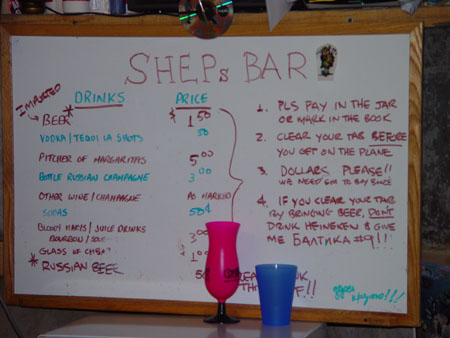 SHEPS BAR
DRINKS PRICE
IMPORTED
* BEER $1.50
VODKA/TEQUILA SHOTS 50
PITCHER OF MARGARITAS 5.00
BOTTLE RUSSIAN CHAMPAGNE 3.00
OTHER WINE/CHAMPAGNE AS MARKED
SODAS 50¢
BLOODY MARYS/JUICE DRINKS
BOURBON/ 3.00
GLASS OF $1.00
* RUSSIAN BEER 50
1. PLS PAY IN THE JAR
OR MARK IN THE BOOK
2. CLEAR YOUR TAB BEFORE
YOU GET ON THE PLANE
3. DOLLARS PLEASE!!
WE NEED EM TO BUY BOOZE
4. IF YOU CLEAR YOUR TAB
BY BRINGING BEER, DONT
DRINK HEINEKEN & GIVE
ME БАЛТИКА #9!!!
!!